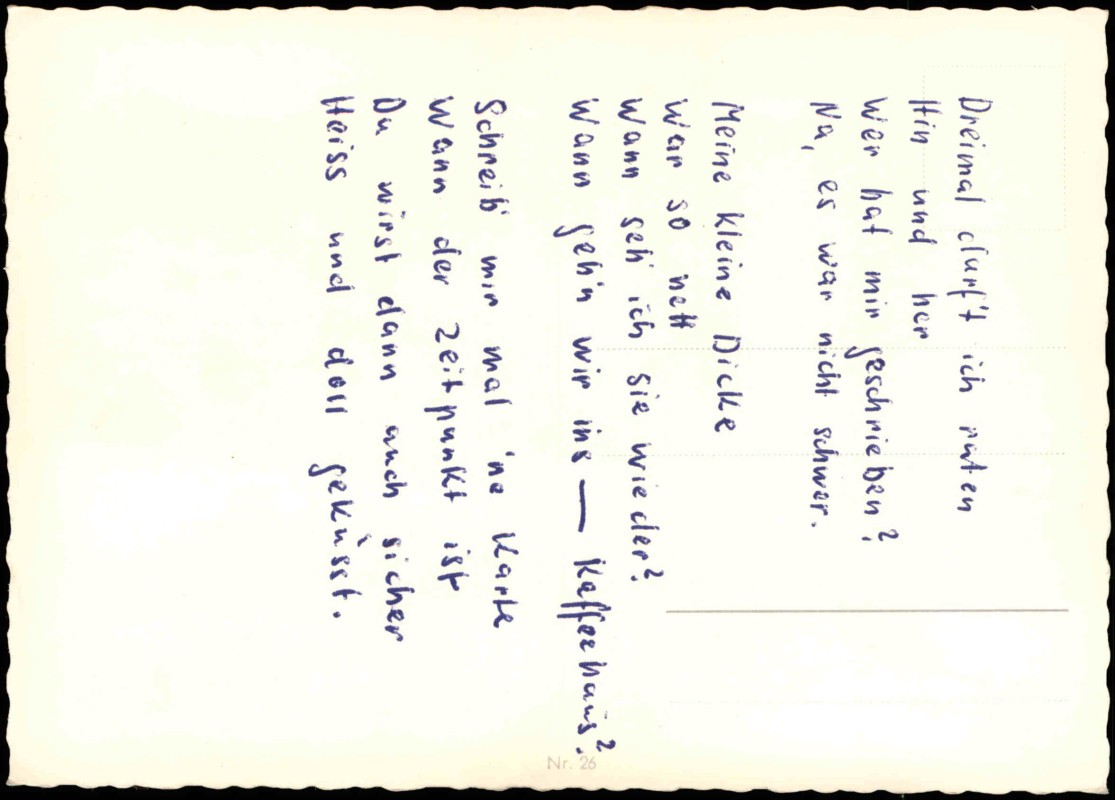 Dreimal durft ich raten
Hin und her
Wer hat mir geschrieben?
Na, es war nicht schwer.
Meine kleine Dicke
War so nett
Wann seh' ich sie wieder?
Wann geh'n wir ins — Kaffeehaus?
Schreib' mir mal 'ne Karte
Wann der Zeitpunkt ist
Du wirst dann auch sicher
Heiss und doll geküsst.
Nr. 26